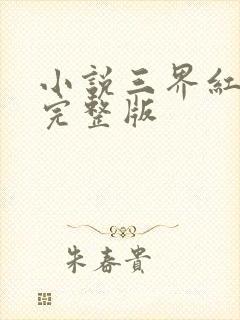 小說三界紅
完整版
朱春貴